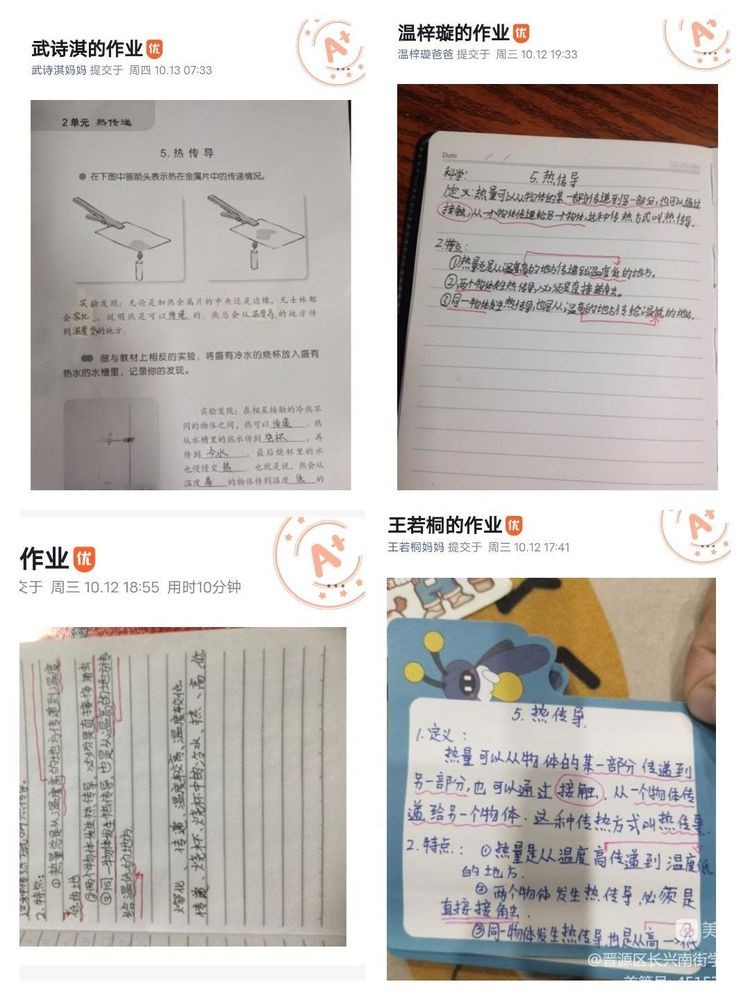 武诗淇的作业 优
武诗淇妈妈 提交于 周四 10.13 07:33
A+
2单元 热传递
5.热传导
● 在下图中画箭头表示热在金属片中的传递情况。
实验发现：无论是加热金属片的中央还是边缘，凡士林都
会熔化，说明热是可以传递的。热总会从温度高的地方传
到温度低的地方。
做与教材上相反的实验，将盛有冷水的烧杯放入盛有
热水的水槽里，记录你的发现。
实验发现：在相互接触的冷热不
同的物体之间，热可以传递。热
从水槽里的热水传到烧杯，再
传到冷水，最后烧杯里的水
也慢慢变热。也就是说，热会从
温度高的物体传到温度低的
温梓璇的作业 优
温梓璇爸爸 提交于 周三 10.12 19:33
A+
Date / /
科学：
5.热传导
1.定义：热量可以从物体的某一部分传递到另一部分，也可以通过
接触，从一个物体传递给另一个物体，这种传热方式叫热传导.
2.特点：
①热量总是从温度高的地方传递到温度低的地方。
②两个物体发生热传导，必须是直接接触。
③同一物体发生热传导，也是从温高的地方传给温低的地方.
作业 优
交于 周三 10.12 18:55 用时10分钟
A+
2.特点：
①热量总是从温度高的地方传递到温度
低的地
②两个物体发生热传导，必须是直接接触
③同一物体发生热传导，也是从温高的地方传
给温低的地方
熔化 传递、温度较高、温度较低
传递、烧杯、烧杯中的冷水、热、高、低
王若桐的作业 优
王若桐妈妈 提交于 周三 10.12 17:41
A+
5.热传导
1.定义：
热量可以从物体的某一部分传递到
另一部分，也可以通过接触，从一个物体传
递给另一个物体.这种传热方式叫热传导
2.特点：①热量是从温度高传递到温度低
的地方.
②两个物体发生热传导必须是
直接接触.
③同一物体发生热传导，也是从高→低
美
@晋源区长兴南街学